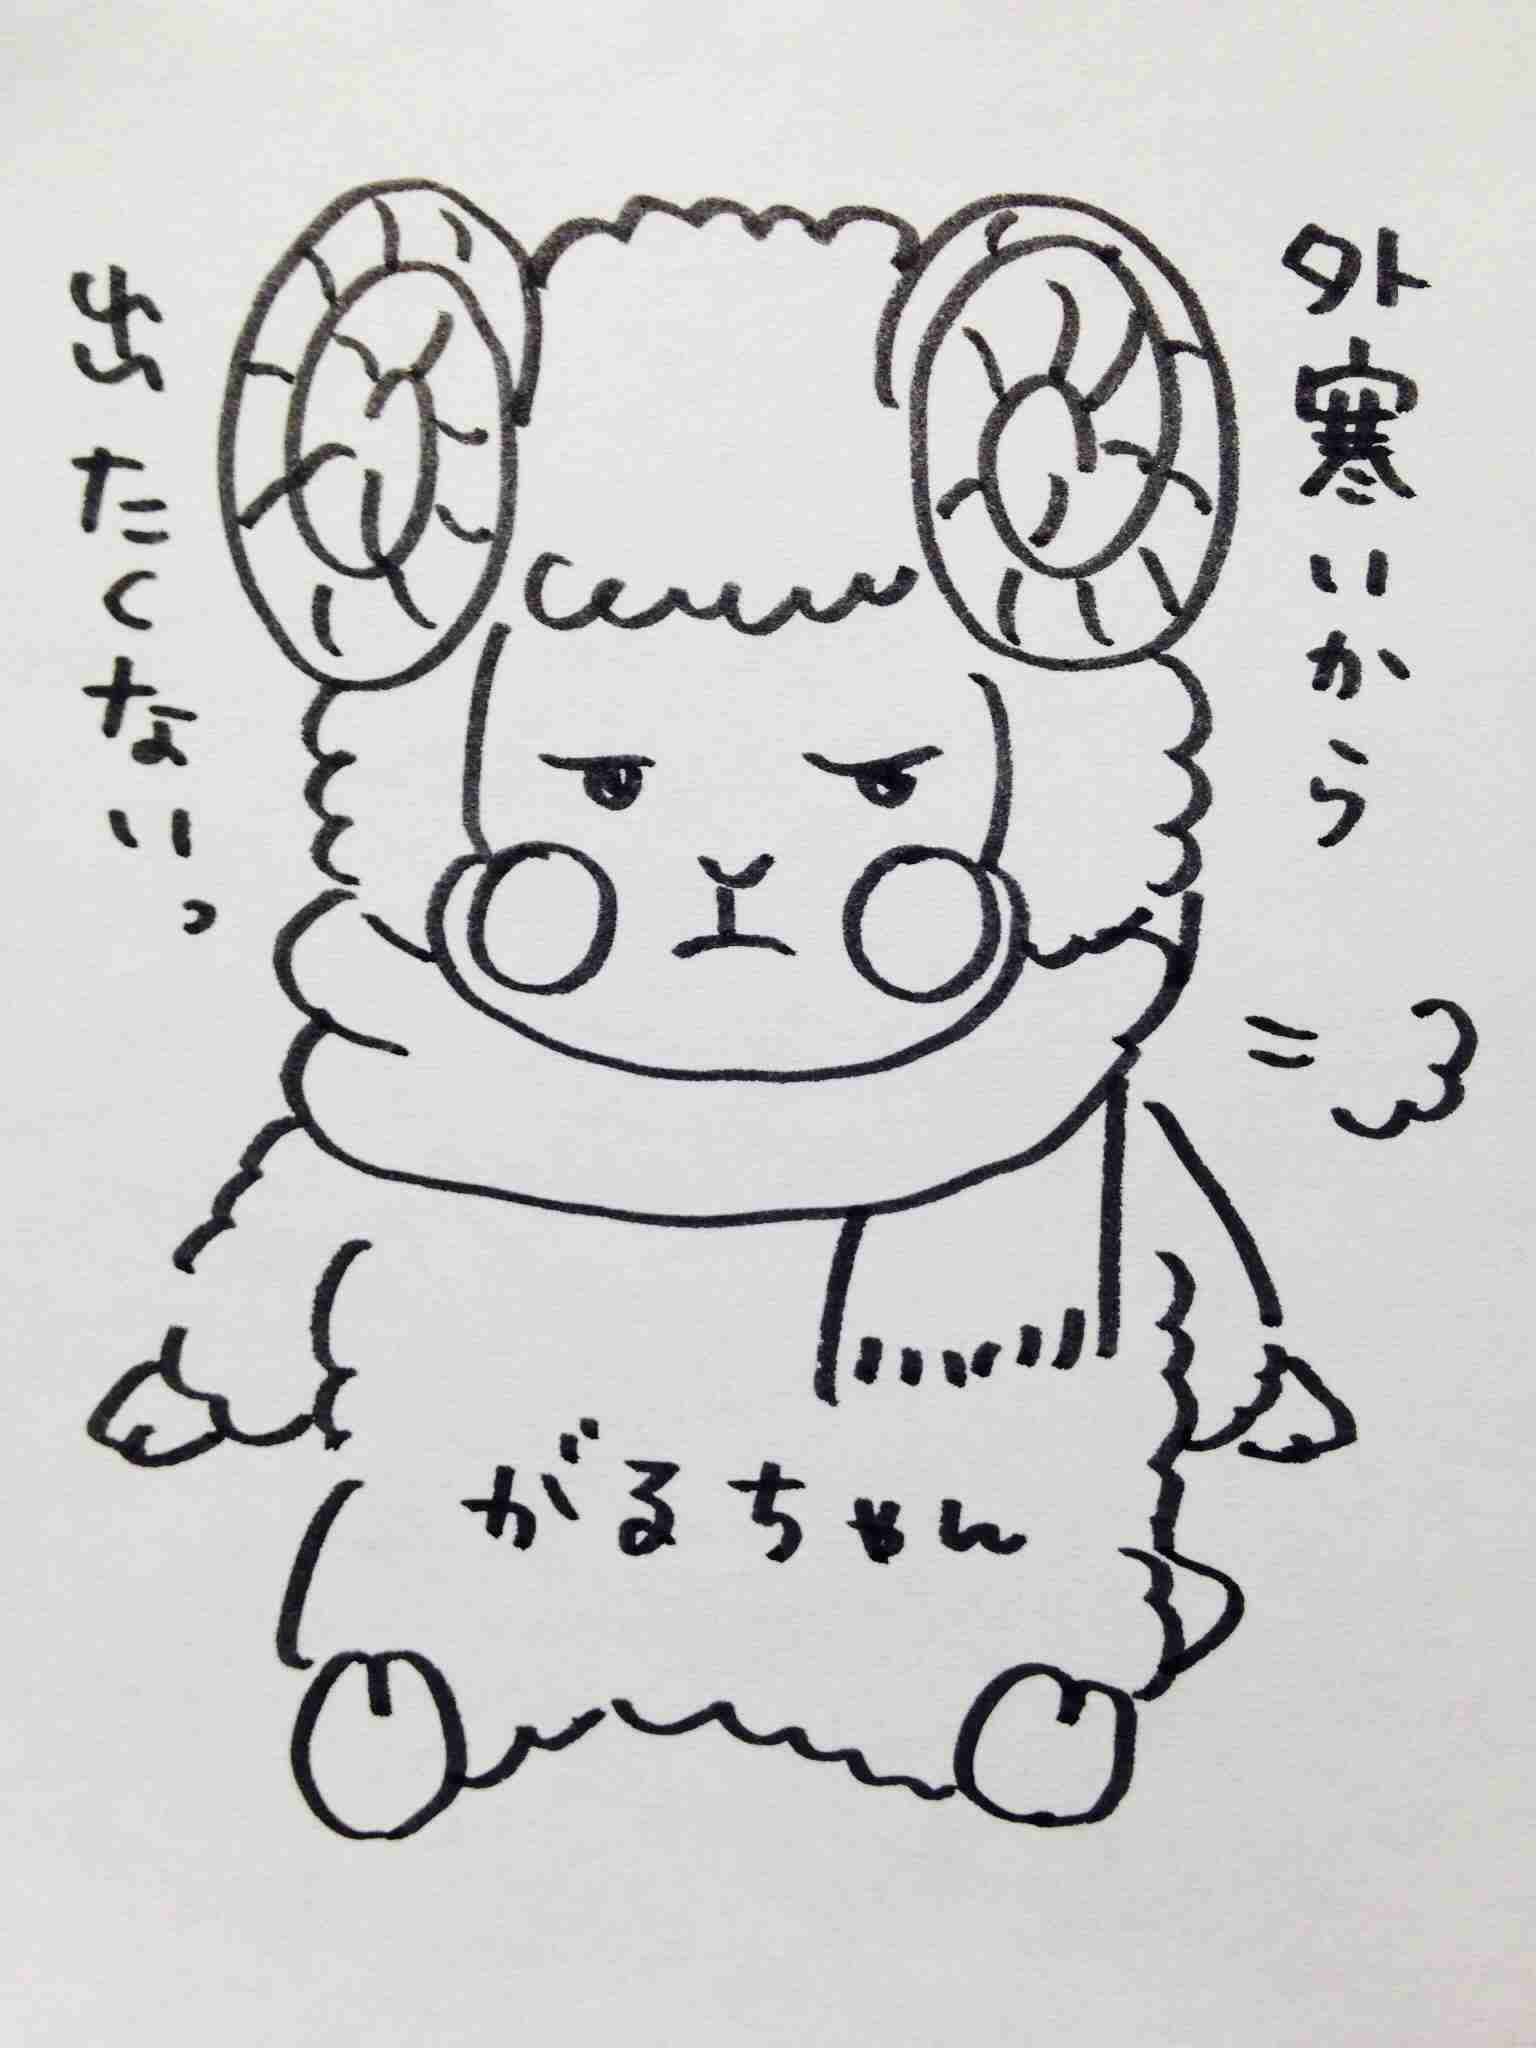 外寒いから
出たくないっ
がるちゃん